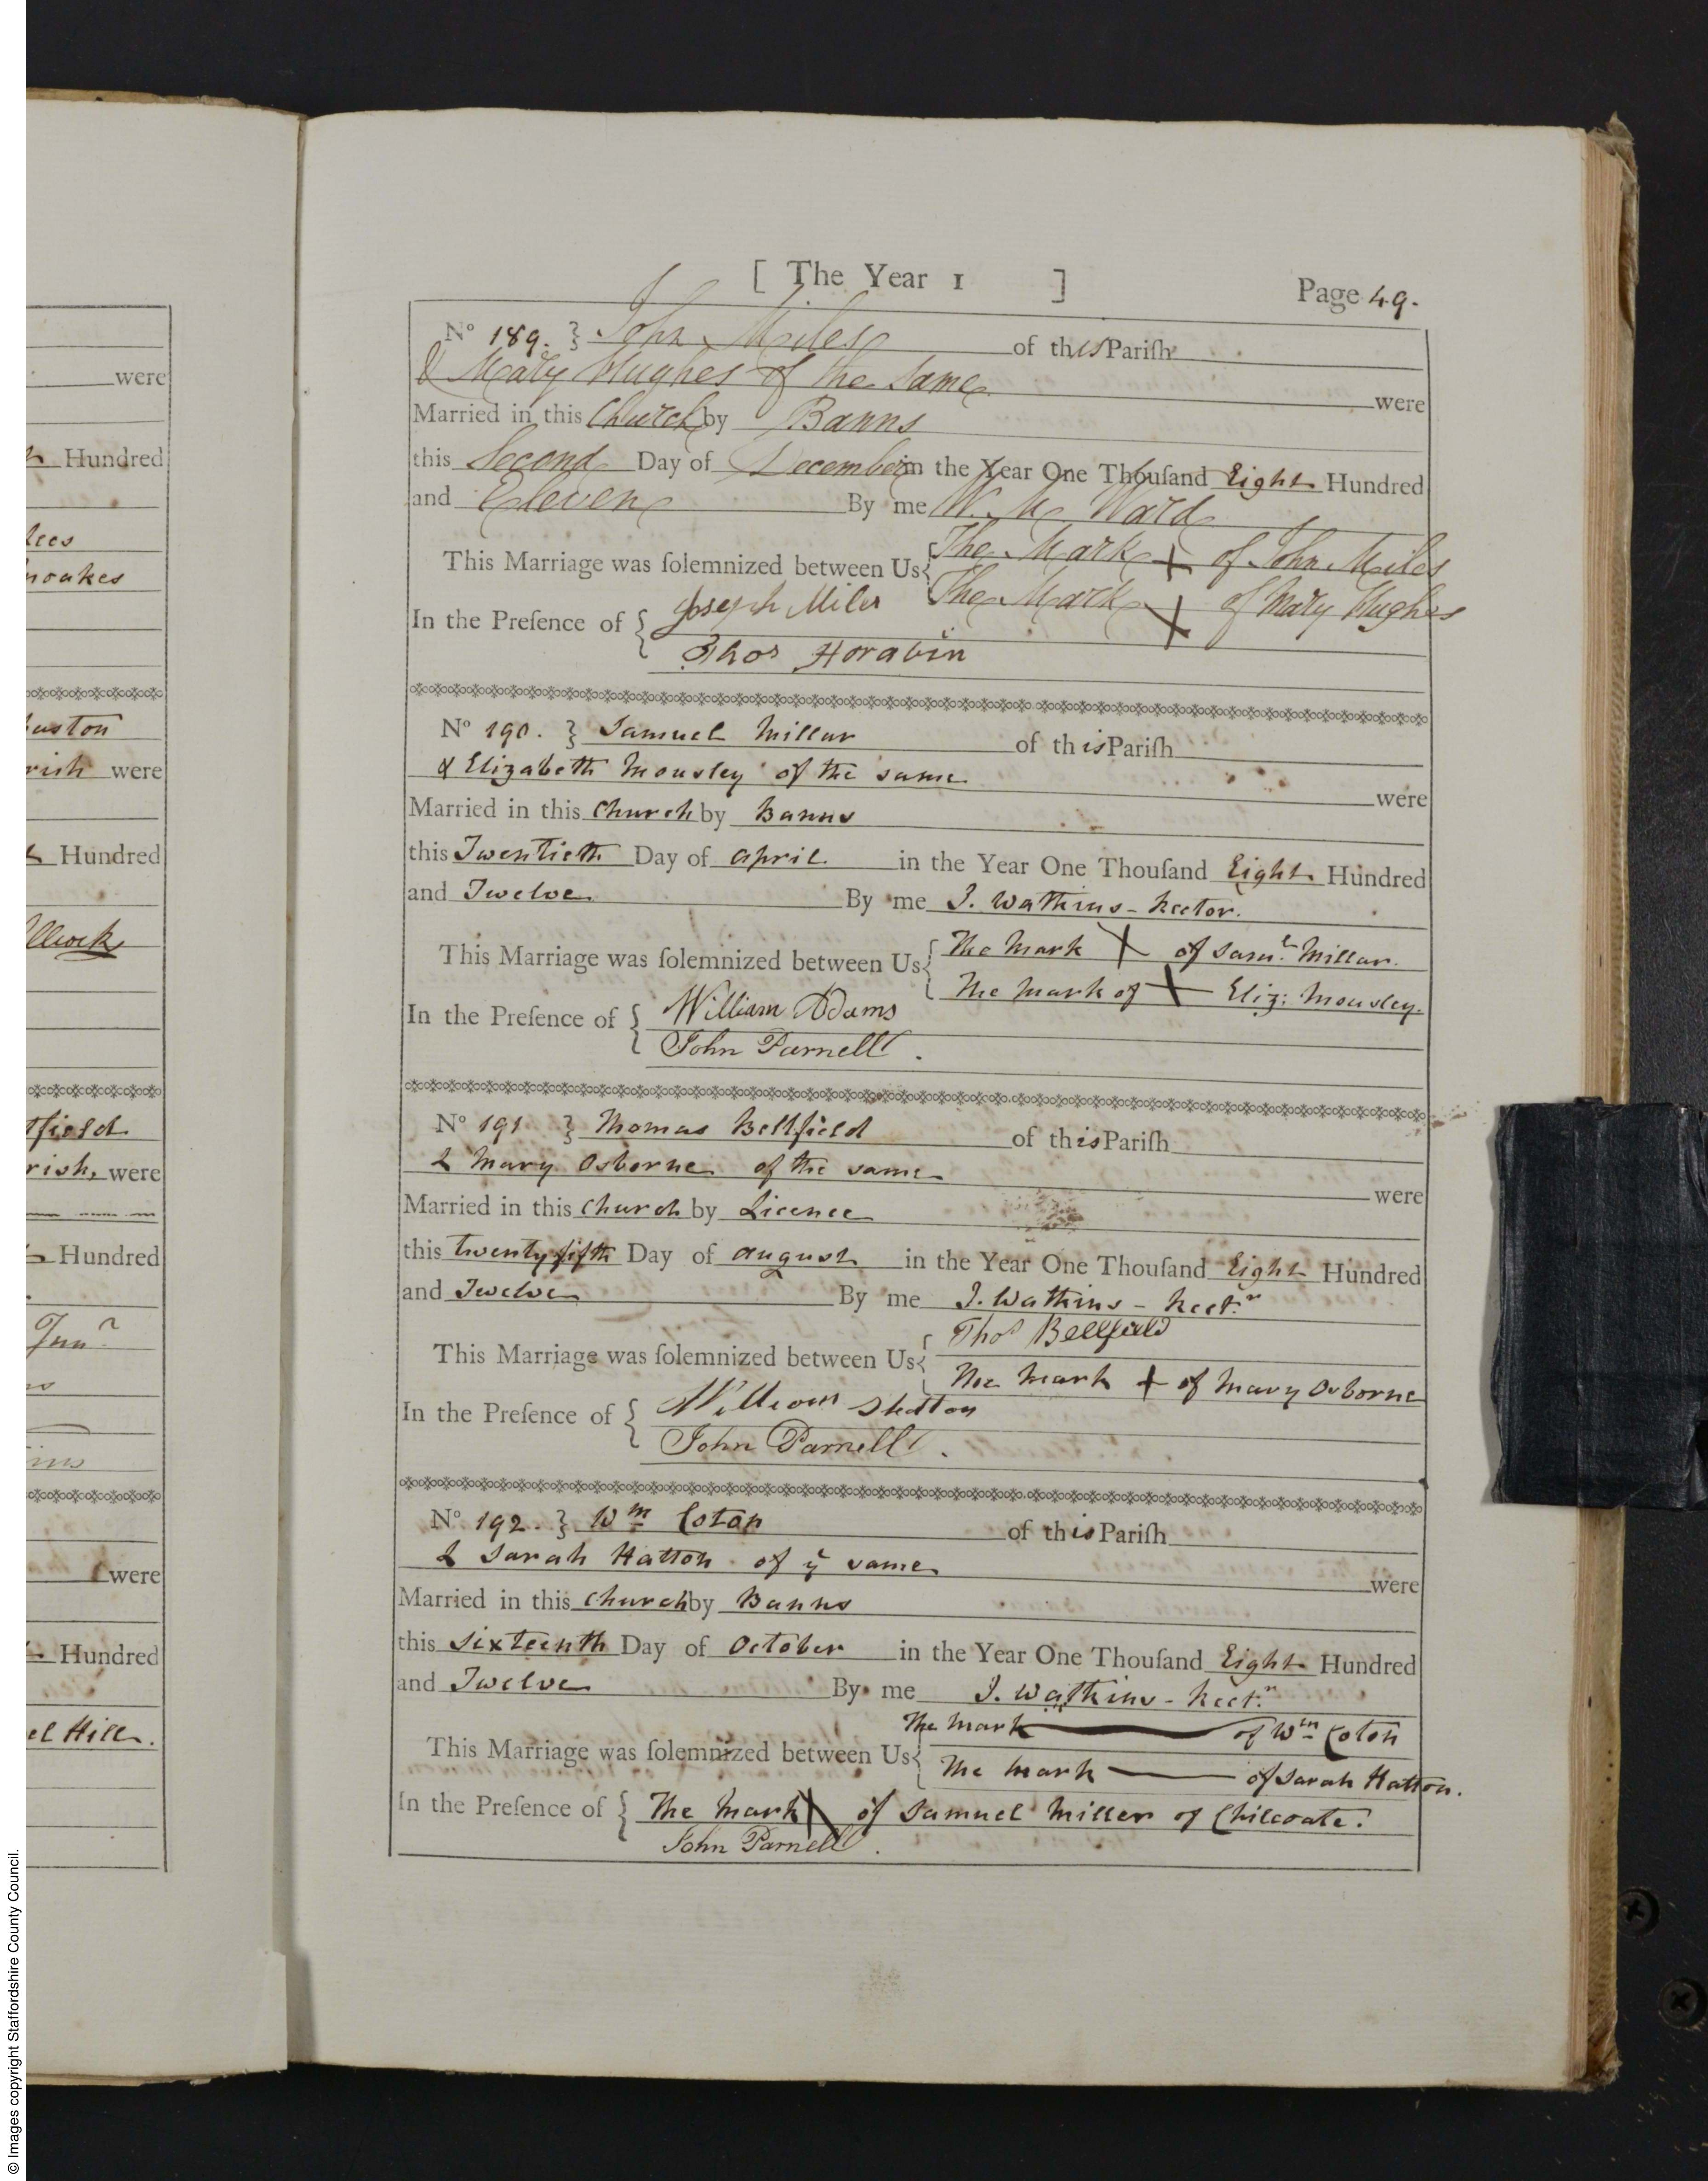 were
Hundred
[ The Year 1 ]
Page 49.
No 189. } John Miles of this Pariſh
& Mary Hughes of the Same
were
Married in this Church by Banns
this Second Day of December in the Year One Thouſand Eight Hundred
and Eleven By me W. M. Ward
This Marriage was ſolemnized between Us { The Mark + of John Miles
The Mark X of Mary Hughes
In the Preſence of { Joseph Miles
Thos Horabin
uston
rish were
Hundred
No 190. } Samuel Millar of this Pariſh
& Elizabeth Mousley of the same
were
Married in this Church by Banns
this Twentieth Day of April in the Year One Thouſand Eight Hundred
and Twelve By me J. Watkins - Rector.
This Marriage was ſolemnized between Us { The Mark X of Saml. Millar.
The Mark of + Eliz: Mousley.
In the Preſence of { William Adams
John Parnell.
tfield
rish, were
Hundred
Junr
No 191 } Thomas Bellfield of this Pariſh
& Mary Osborne of the same
were
Married in this Church by Licence
this twenty fifth Day of August in the Year One Thouſand Eight Hundred
and Twelve By me J. Watkins - Rectr.
This Marriage was ſolemnized between Us { Thos Bellfield
The Mark + of Mary Osborne
In the Preſence of { William Shelton
John Parnell.
were
Hundred
el Hill.
No 192. } Wm Coton of this Pariſh
& Sarah Hatton of ye same
were
Married in this Church by Banns
this Sixteenth Day of October in the Year One Thouſand Eight Hundred
and Twelve By me J. Watkins - Rectr.
This Marriage was ſolemnized between Us { The Mark — of Wm Coton
The Mark — of Sarah Hatton.
In the Preſence of { The Mark X of Samuel Miller of Chilcoate.
John Parnell.
© Images copyright Staffordshire County Council.